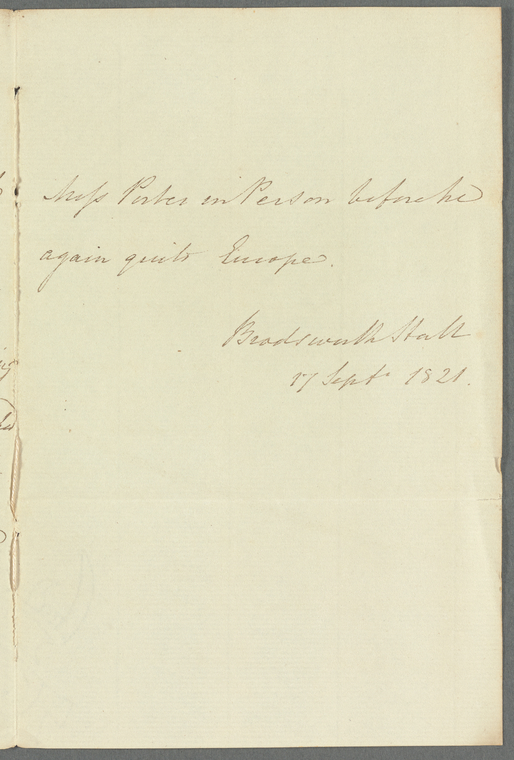 Miss Porter in Person before he
again quits Europe.
Brodsworth Hall
17 Septr 1821.